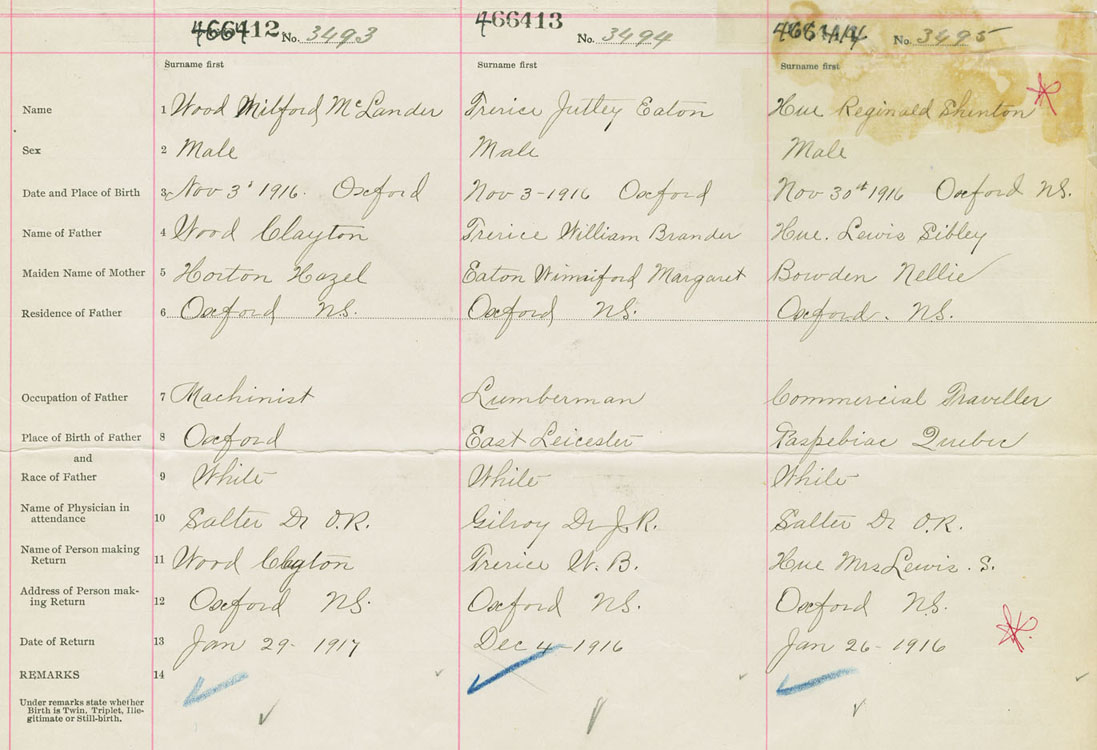 466412 No. 3493 466413 No. 3494 No. 3495
Surname first Surname first Surname first
Name 1 Wood Milford McLander Trerice Jutley Eaton Hue Reginald Shinton
Sex 2 Male Male Male
Date and Place of Birth 3 Nov 3rd 1916. Oxford Nov 3-1916 Oxford Nov 30th 1916 Oxford NS.
Name of Father 4 Wood Clayton Trerice William Brander Hue. Lewis Sibley
Maiden Name of Mother 5 Horton Hazel Eaton Winniford Margaret Bowden Nellie
Residence of Father 6 Oxford NS. Oxford NS. Oxford. NS.
Occupation of Father 7 Machinist Lumberman Commercial Traveller
Place of Birth of Father 8 Oxford East Leicester Paspebiac Quebec
and
Race of Father 9 White White White
Name of Physician in
attendance 10 Salter Dr O.R. Gilroy Dr J.R. Salter Dr O.R.
Name of Person making
Return 11 Wood Clayton Trerice W.B. Hue Mrs Lewis. S.
Address of Person mak-
ing Return 12 Oxford NS. Oxford NS. Oxford NS.
Date of Return 13 Jan 29- 1917 Dec 4-1916 Jan 26-1916
REMARKS 14
Under remarks state whether
Birth is Twin, Triplet, Ille-
gitimate or Still-birth.